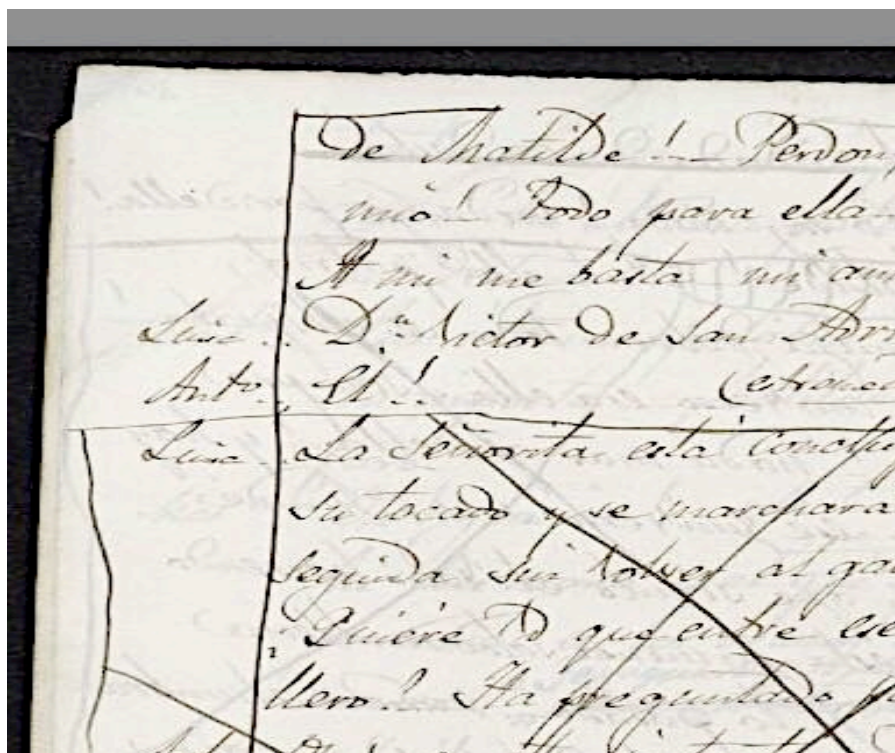 de Matilde!.. Perdon,
mio! Todo para ella
A mi me basta mi am
Luisa.. Dn Victor de San Adri
Anto.. El!
Luisa.. La Señorita está conclu
su tocado y se marchará
seguida sin volver al ga
¿Quiere Vd que entre ese
llero?.. Ha preguntado p